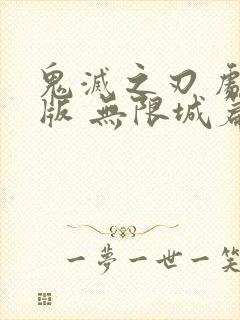 鬼滅之刃
版 無限城
一夢一世一笑